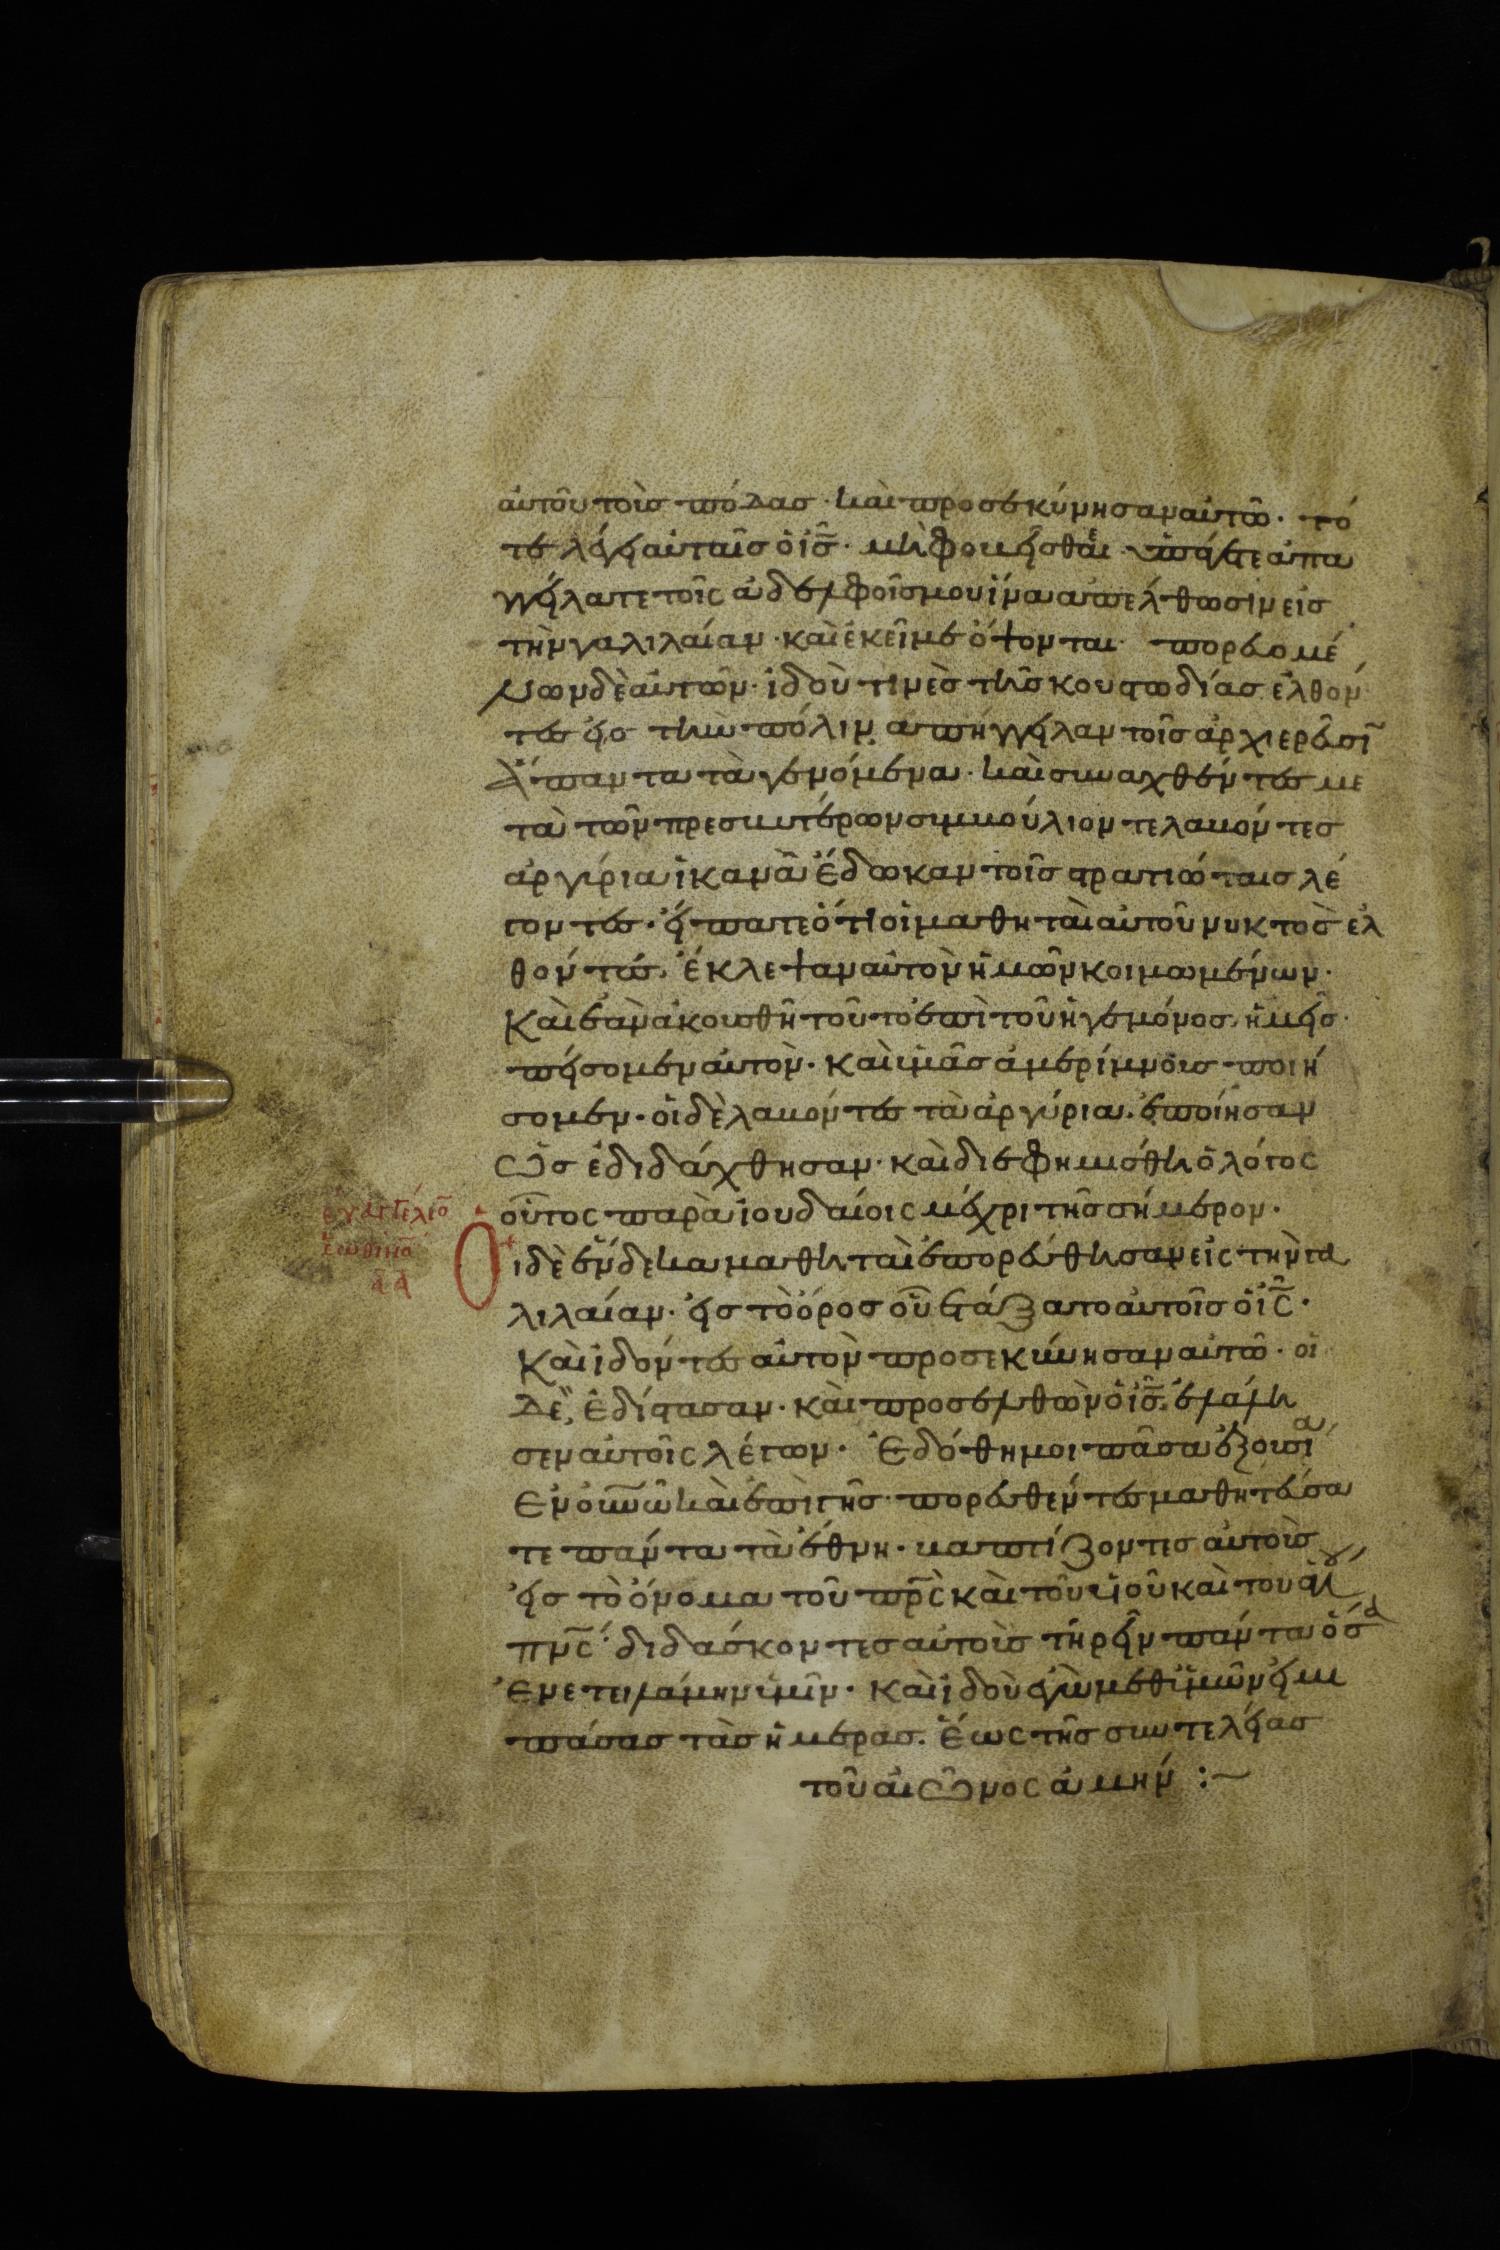 αὐτοῦ τοὺσ πόδασ· καὶ προσεκύνησαν αὐτῶ· τό
τε λέγει αὐταῖσ ὁ ἰ̅σ̅· μὴ φοβεῖσθαι· ὑπάγετε ἀπα
γγείλατε τοῖς ἀδελφοῖσ μου ἵνα ἀπελθωσιν εἰσ
τὴν γαλιλαίαν· καὶ ἐκεῖ με ὄψονται· πορευομέ
νων δὲ αὐτῶν· ἰδοὺ τινὲσ τῆσ κουστωδίασ ἐλθόν
τεσ εἰσ τὴν πόλιν ἀπήγγειλαν τοῖσ ἀρχιερεῦσῖ
ἅπαντα τὰ γενόμενα· καὶ συναχθέντεσ με
τὰ τῶν πρεσβυτέρων συμβούλιον τε λαβόντεσ
ἀργύρια ἱκανὰ ἔδωκαν τοῖσ στρατιώταισ λέ
γοντεσ· εἴπατε ὅτι οἱ μαθηταὶ αὐτοῦ νυκτὸσ ἐλ
θόντεσ. ἔκλεψαν αὐτὸν ἡμῶν κοιμωμένων·
Καὶ ἐὰν ἀκουσθῆ τοῦτο ἐπὶ τοῦ ἡγεμόνοσ, ἡμεῖσ·
πείσομεν αὐτὸν· καὶ ὑμᾶσ ἀμερίμνουσ ποιή
σομεν· οἱ δὲ λαβόντεσ τὰ ἀργύρια. ἐποίησαν
ὡσ ἐδιδάχθησαν· καὶ διεφημίσθη ὁ λόγος
οὗτος παρὰ ἰουδαίοις μέχρι τῆσ σήμερον·
εὐαγγέλιο̅
ἑωθινο̅
α̅ Α
Οἱ δὲ ἕνδεκα μαθηταὶ ἐπορεύθησαν εἰς τὴν γα
λιλαίαν· εἰσ τὸ ὄροσ οὗ ἐτάξατο αὐτοῖσ ὁ ἰ̅ς̅·
Καὶ ἰδόντεσ αὐτὸν προσεκύνησαν αὐτῶ· οἱ
δὲ, ἐδίστασαν· καὶ προσελθὼν ὁ ἰ̅σ̅. ἐλάλη
σεν αὐτοῖς λέγων· Ἐδόθη μοι πᾶσα ἐξουσία
ἐν ο̅υ̅ν̅ω̅ καὶ ἐπὶ γῆσ· πορευθέντεσ μαθητεύσα
τε πάντα τὰ ἔθνη· βαπτίζοντεσ αὐτοὺσ
εἰσ τὸ ὄνομα τοῦ π̅ρ̅ς̅ καὶ τοῦ υἱοῦ καὶ του ἁγίου
π̅ν̅ς̅· διδάσκοντεσ αὐτοὺσ τηρεῖν πάντα ὅσα
ἐνετειλάμην ὑμῖν· καὶ ἰδοὺ ἐγὼ μεθ' ὑμῶν εἰμι
πάσασ τὰσ ἡμέρασ. ἕως τῆσ συντελείασ
τοῦ αἰῶνος ἀμήν :~